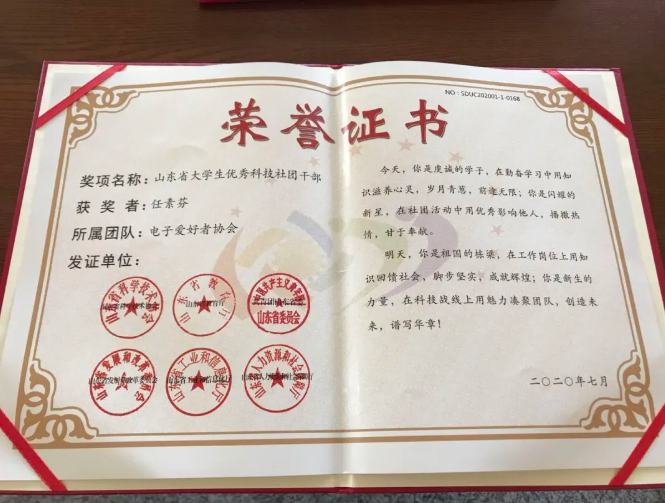 NO：SDUC202001-1-0168
荣誉证书
奖项名称：山东省大学生优秀科技社团干部
获 奖 者：任素芬
所属团队：电子爱好者协会
发证单位：
山东省科学技术协会
山东省教育厅
共青团山东省委
山东省委员会
山东省发展和改革委员会
山东省工业和信息化厅
山东省人力资源和社会保障厅
今天，你是虔诚的学子，在勤奋学习中用知
识滋养心灵，岁月青葱，前途无限；你是闪耀的
新星，在社团活动中用优秀影响他人，播撒热
情，甘于奉献。
明天，你是祖国的栋梁，在工作岗位上用知
识回馈社会，脚步坚实，成就辉煌；你是新生的
力量，在科技战线上用魅力凑聚团队，创造未
来，谱写华章！
二〇二〇年七月